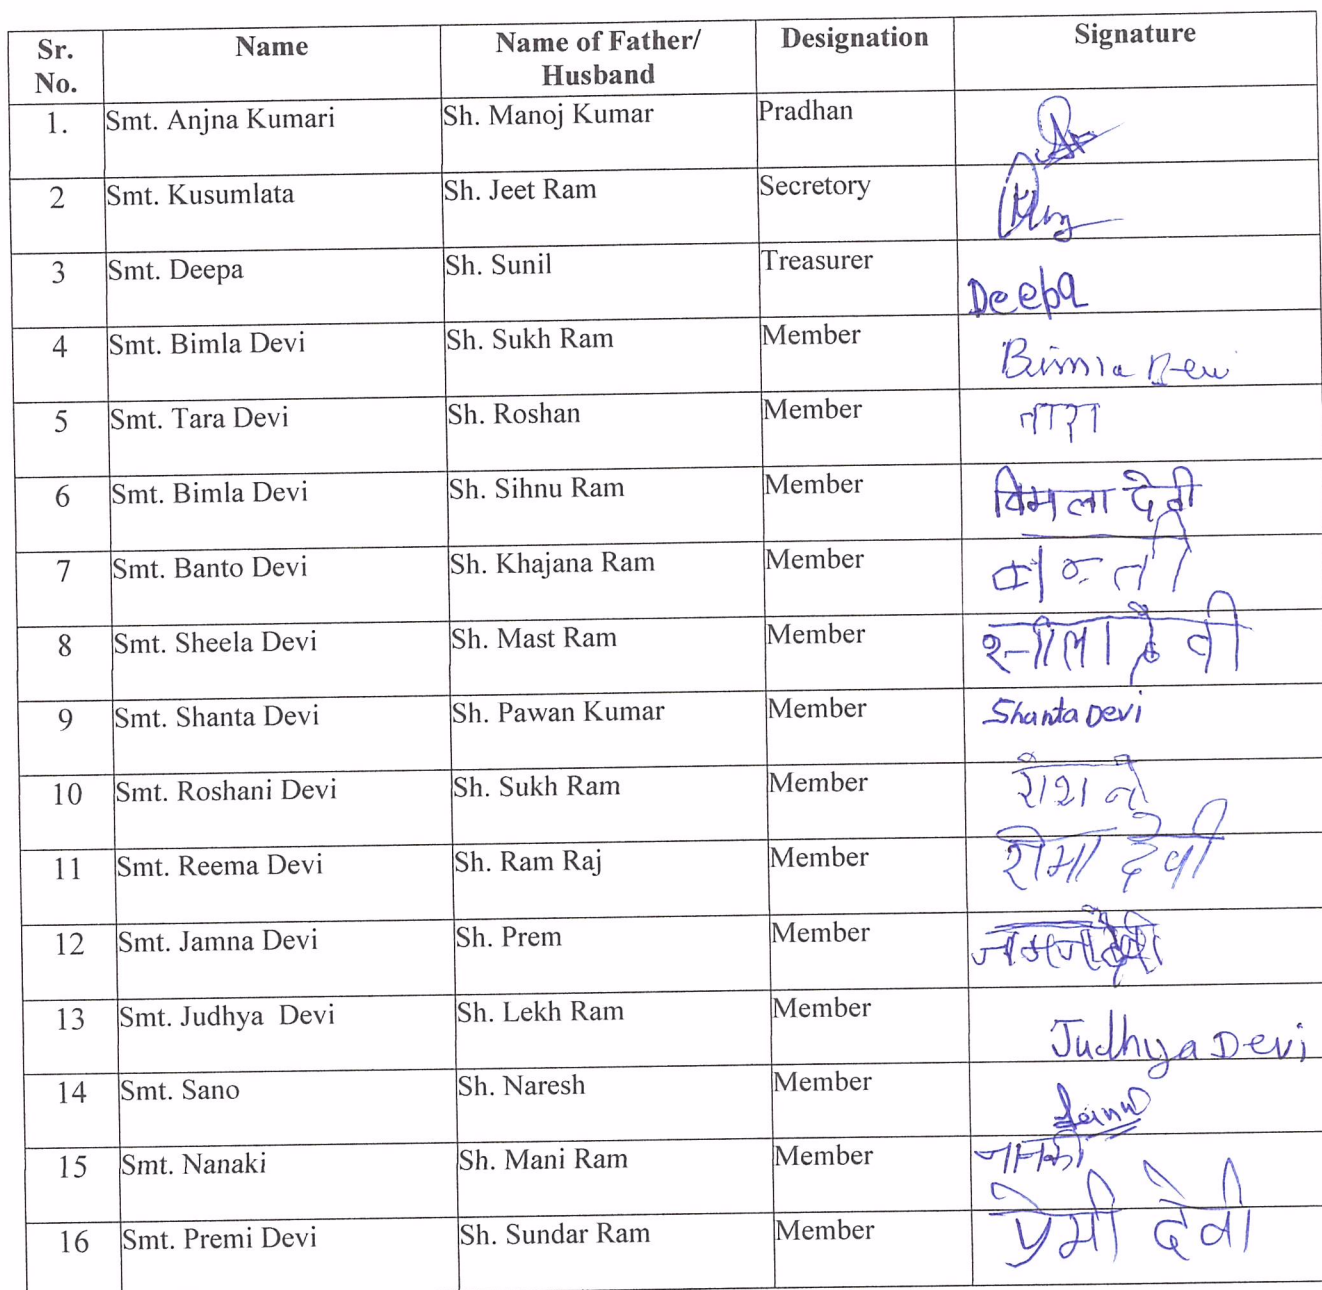 Sr. No. Name Name of Father/ Husband Designation Signature
1. Smt. Anjna Kumari Sh. Manoj Kumar Pradhan
2 Smt. Kusumlata Sh. Jeet Ram Secretory
3 Smt. Deepa Sh. Sunil Treasurer Deepa
4 Smt. Bimla Devi Sh. Sukh Ram Member Bimla Devi
5 Smt. Tara Devi Sh. Roshan Member तारा
6 Smt. Bimla Devi Sh. Sihnu Ram Member विमला देवी
7 Smt. Banto Devi Sh. Khajana Ram Member
8 Smt. Sheela Devi Sh. Mast Ram Member देवी
9 Smt. Shanta Devi Sh. Pawan Kumar Member Shanta Devi
10 Smt. Roshani Devi Sh. Sukh Ram Member
11 Smt. Reema Devi Sh. Ram Raj Member रीमा देवी
12 Smt. Jamna Devi Sh. Prem Member
13 Smt. Judhya Devi Sh. Lekh Ram Member Judhya Devi
14 Smt. Sano Sh. Naresh Member
15 Smt. Nanaki Sh. Mani Ram Member
16 Smt. Premi Devi Sh. Sundar Ram Member प्रेमी देवी